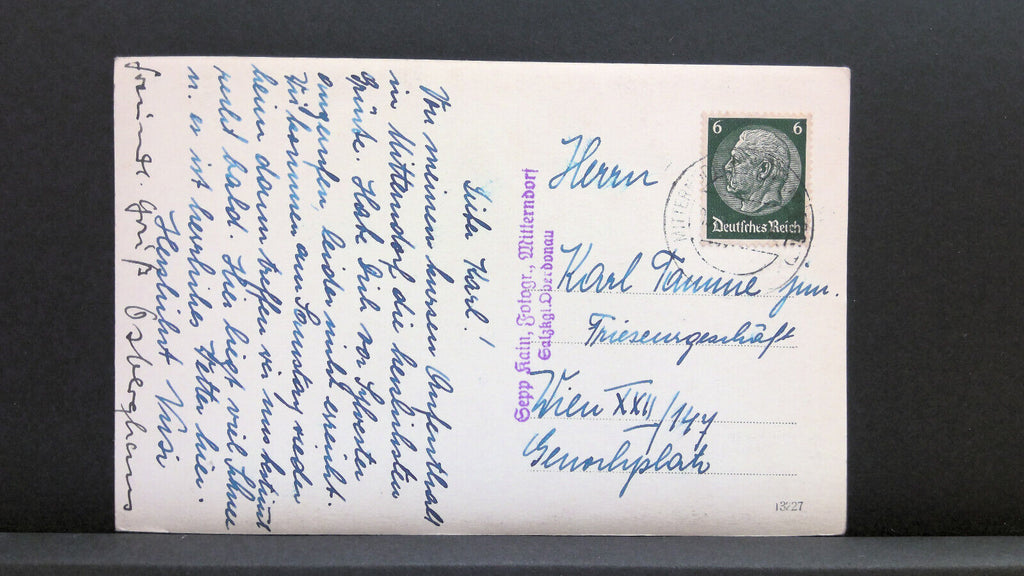 Lieber Karl!
Von meinem kurzen Aufenthalt
in Mitterndorf die herzlichsten
Grüße. Hab Dich vor Sylvester
angerufen, leider nicht erreicht.
Wir kommen am Sonntag wieder
heim dann treffen wir uns bestimmt
recht bald. Hier liegt viel Schnee
u. es ist herrliches Wetter hier.
Herzlichst
Gruß
Sepp Kain, Fotogr., Mitterndorf
Salzkgt. Oberdonau
6 6
Deutsches Reich
Herrn
Karl Tamme jun.
Friseurgeschäft
Wien XXII/147
Genochplatz
13227